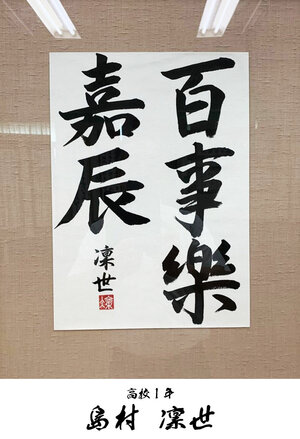 百事樂
嘉辰
凜世
高校1年
島村 凜世